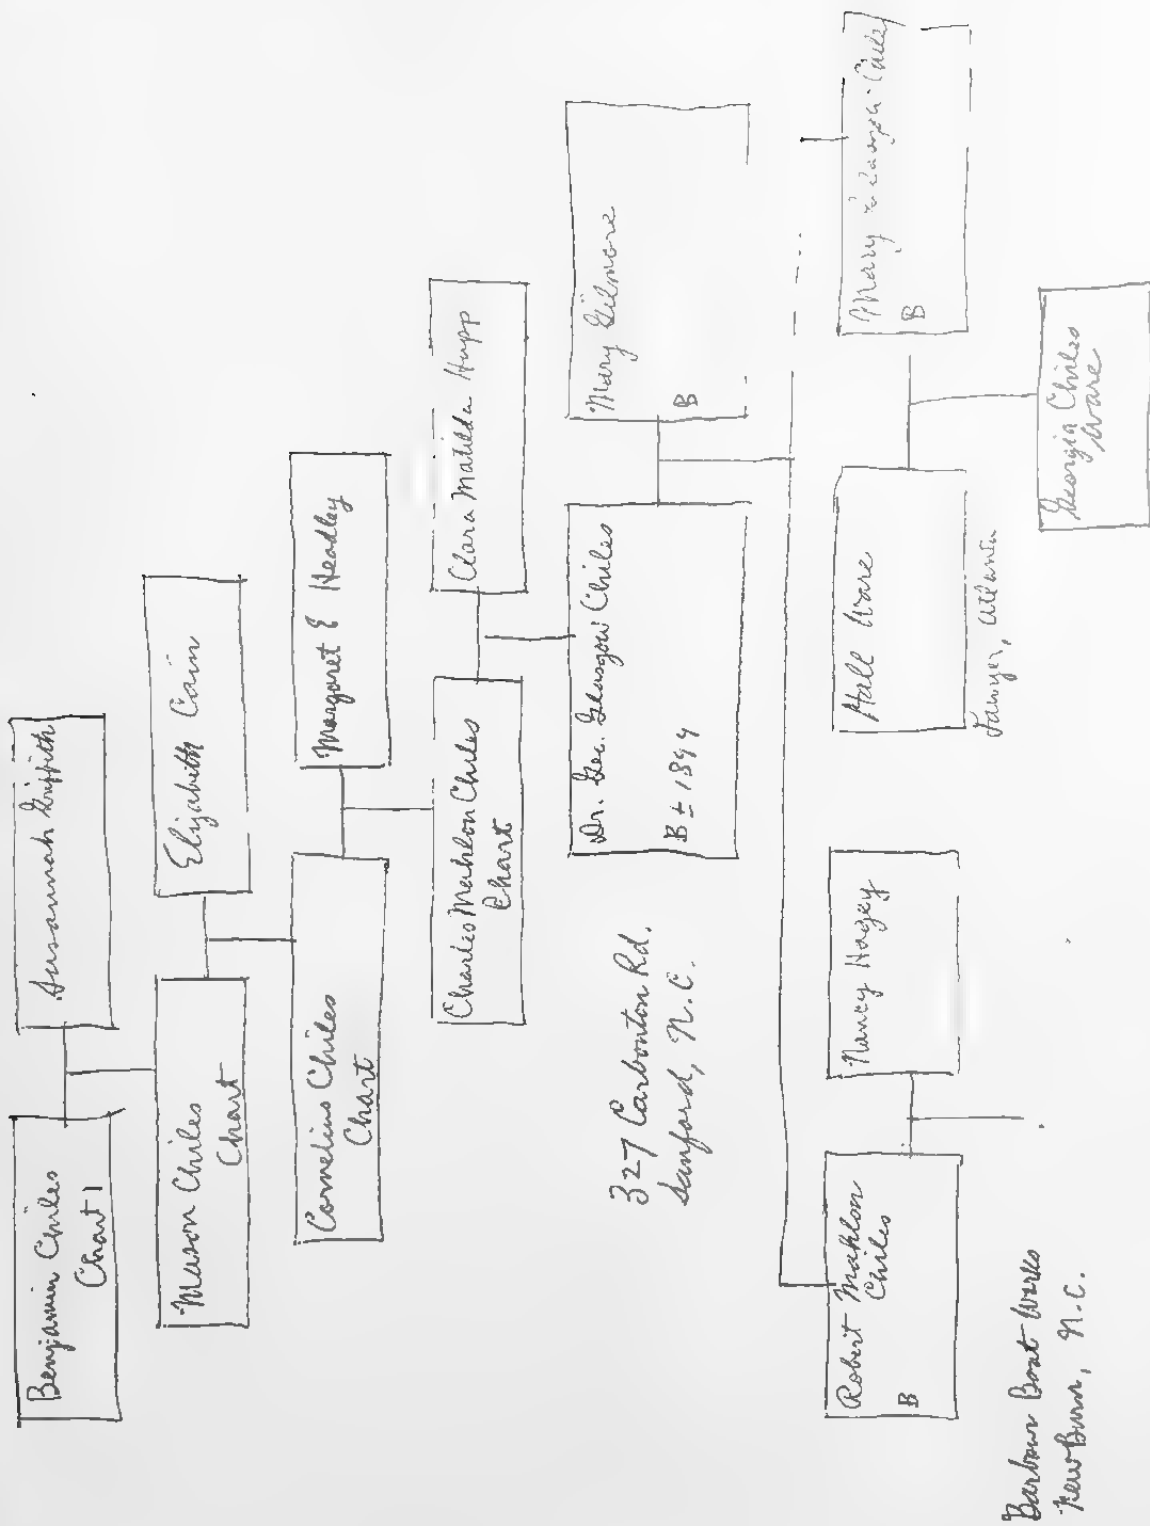 Benjamin Chiles
Chart 1
Susannah Griffith
Mason Chiles
Chart
Elizabeth Cain
Cornelius Chiles
Chart
Margaret E Headley
Charles Mahlon Chiles
Chart
Clara Matilda Hupp
Dr. Geo. Glasgow Chiles
B ± 1899
Mary Gilmore
B
327 Carbonton Rd.
Sanford, N.C.
Robert Mahlon
Chiles
B
Nancy Hagey
Hall Ware
Lawyer, Atlanta
Mary
B
Georgia Chiles
Ware
Barbour Boat Works
New Burn, N.C.